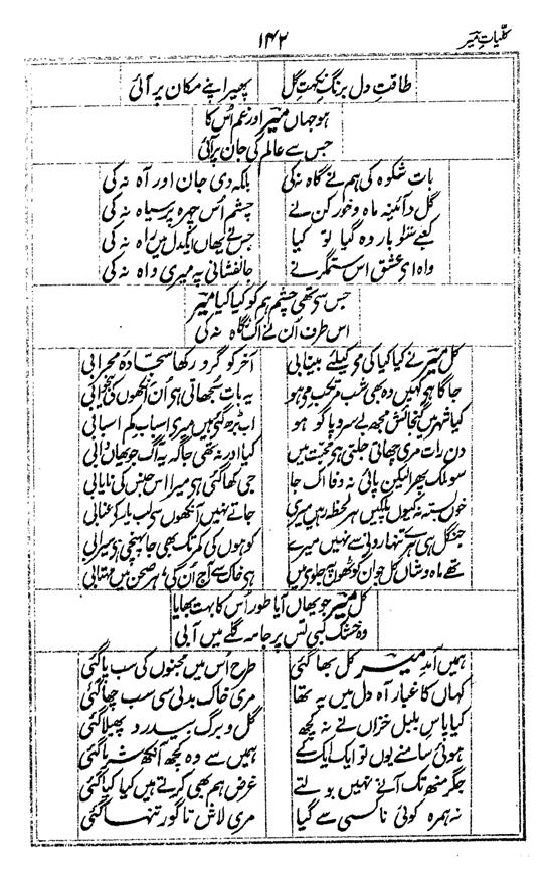 کلیاتِ میر
۱۴۲
طاقتِ دل برنگِ نکہتِ گل پھیر اپنے مکان پر آئی
ہو جہاں میر اور غم اُس کا
جس سے عالم کی جان پر آئی
بات شکوہ کی ہم نے گاہ نہ کی بلکہ دی جان اور آہ نہ کی
گل و آئینہ ماہ و خور کن نے چشم اُس چہرہ پر سیاہ نہ کی
کعبے سَو بار وہ گیا تو کیا جس نے یھاں ایکدل میں راہ نہ کی
واہ ای عشق اس ستمگر نے جانفشانی پہ میری واہ نہ کی
جس سے تھی چشم ہم کو کیا کیا میر
اس طرف اُن نے اک نگاہ نہ کی
کل میر نے کیا کیا کی می کیلئے بیتابی آخر کو گرو رکھا سجّادہ محرابی
جاگا ہی کہیں وہ بھی شب مرتکبِ می ہو یہ بات سُجھاتی ہی اُن آنکھوں کی بیخوابی
کیا شہر میں گنجائش مجھ بے سر و پا کو ہو اب بڑھ گئے ہیں میری اسبابِ کم اسبابی
دن رات مری چھاتی جلتی ہی محبّت میں کیا اور نہ تھی جاگہ یہ آگ جو یھاں دابی
سو ملک پھرا لیکن پائی نہ وفا اک جا جی کھا گئی ہی میرا اس جنس کی نایابی
خوں بستہ نہ کیوں پلکیں ہر لحظہ رہیں میری جاتے نہیں آنکھوں سے لب یار کے عنابی
جنگل ہی ہرے تنہا رونے سے نہیں میرے کوہوں کی کمر تک بھی جا پہنچی ہی سیرابی
تھے ماہ وشاں کل جو ان کوٹھوں پہ جلوی میں ہی خاک سے آج اُن کی ہر صحن میں مہتابی
کل میر جو یھاں آیا طور اُس کا بہت بھایا
وہ خشک لبی تس پر جامہ گلے میں آبی
ہمیں آمدِ میر کل بھا گئی طرح اُس میں مجنوں کی سب پا گئی
کہاں کا غبار آہ دل میں یہ تھا مری خاک بدلی سی سب چھا گئی
کیا پاسِ بلبل خزاں نے نہ کچھ گل و برگ بیدرد پھیلا گئی
ہوئی سامنے یوں تو ایک ایک کے ہمیں سے وہ کچھ آنکھ شرما گئی
جگر منھ تک آئے نہیں بولتے غرض ہم بھی کرتے ہیں کیا کیا گئی
نہ ہمرہ کوئی ناکسی سے گیا مری لاش تا گور تنہا گئی